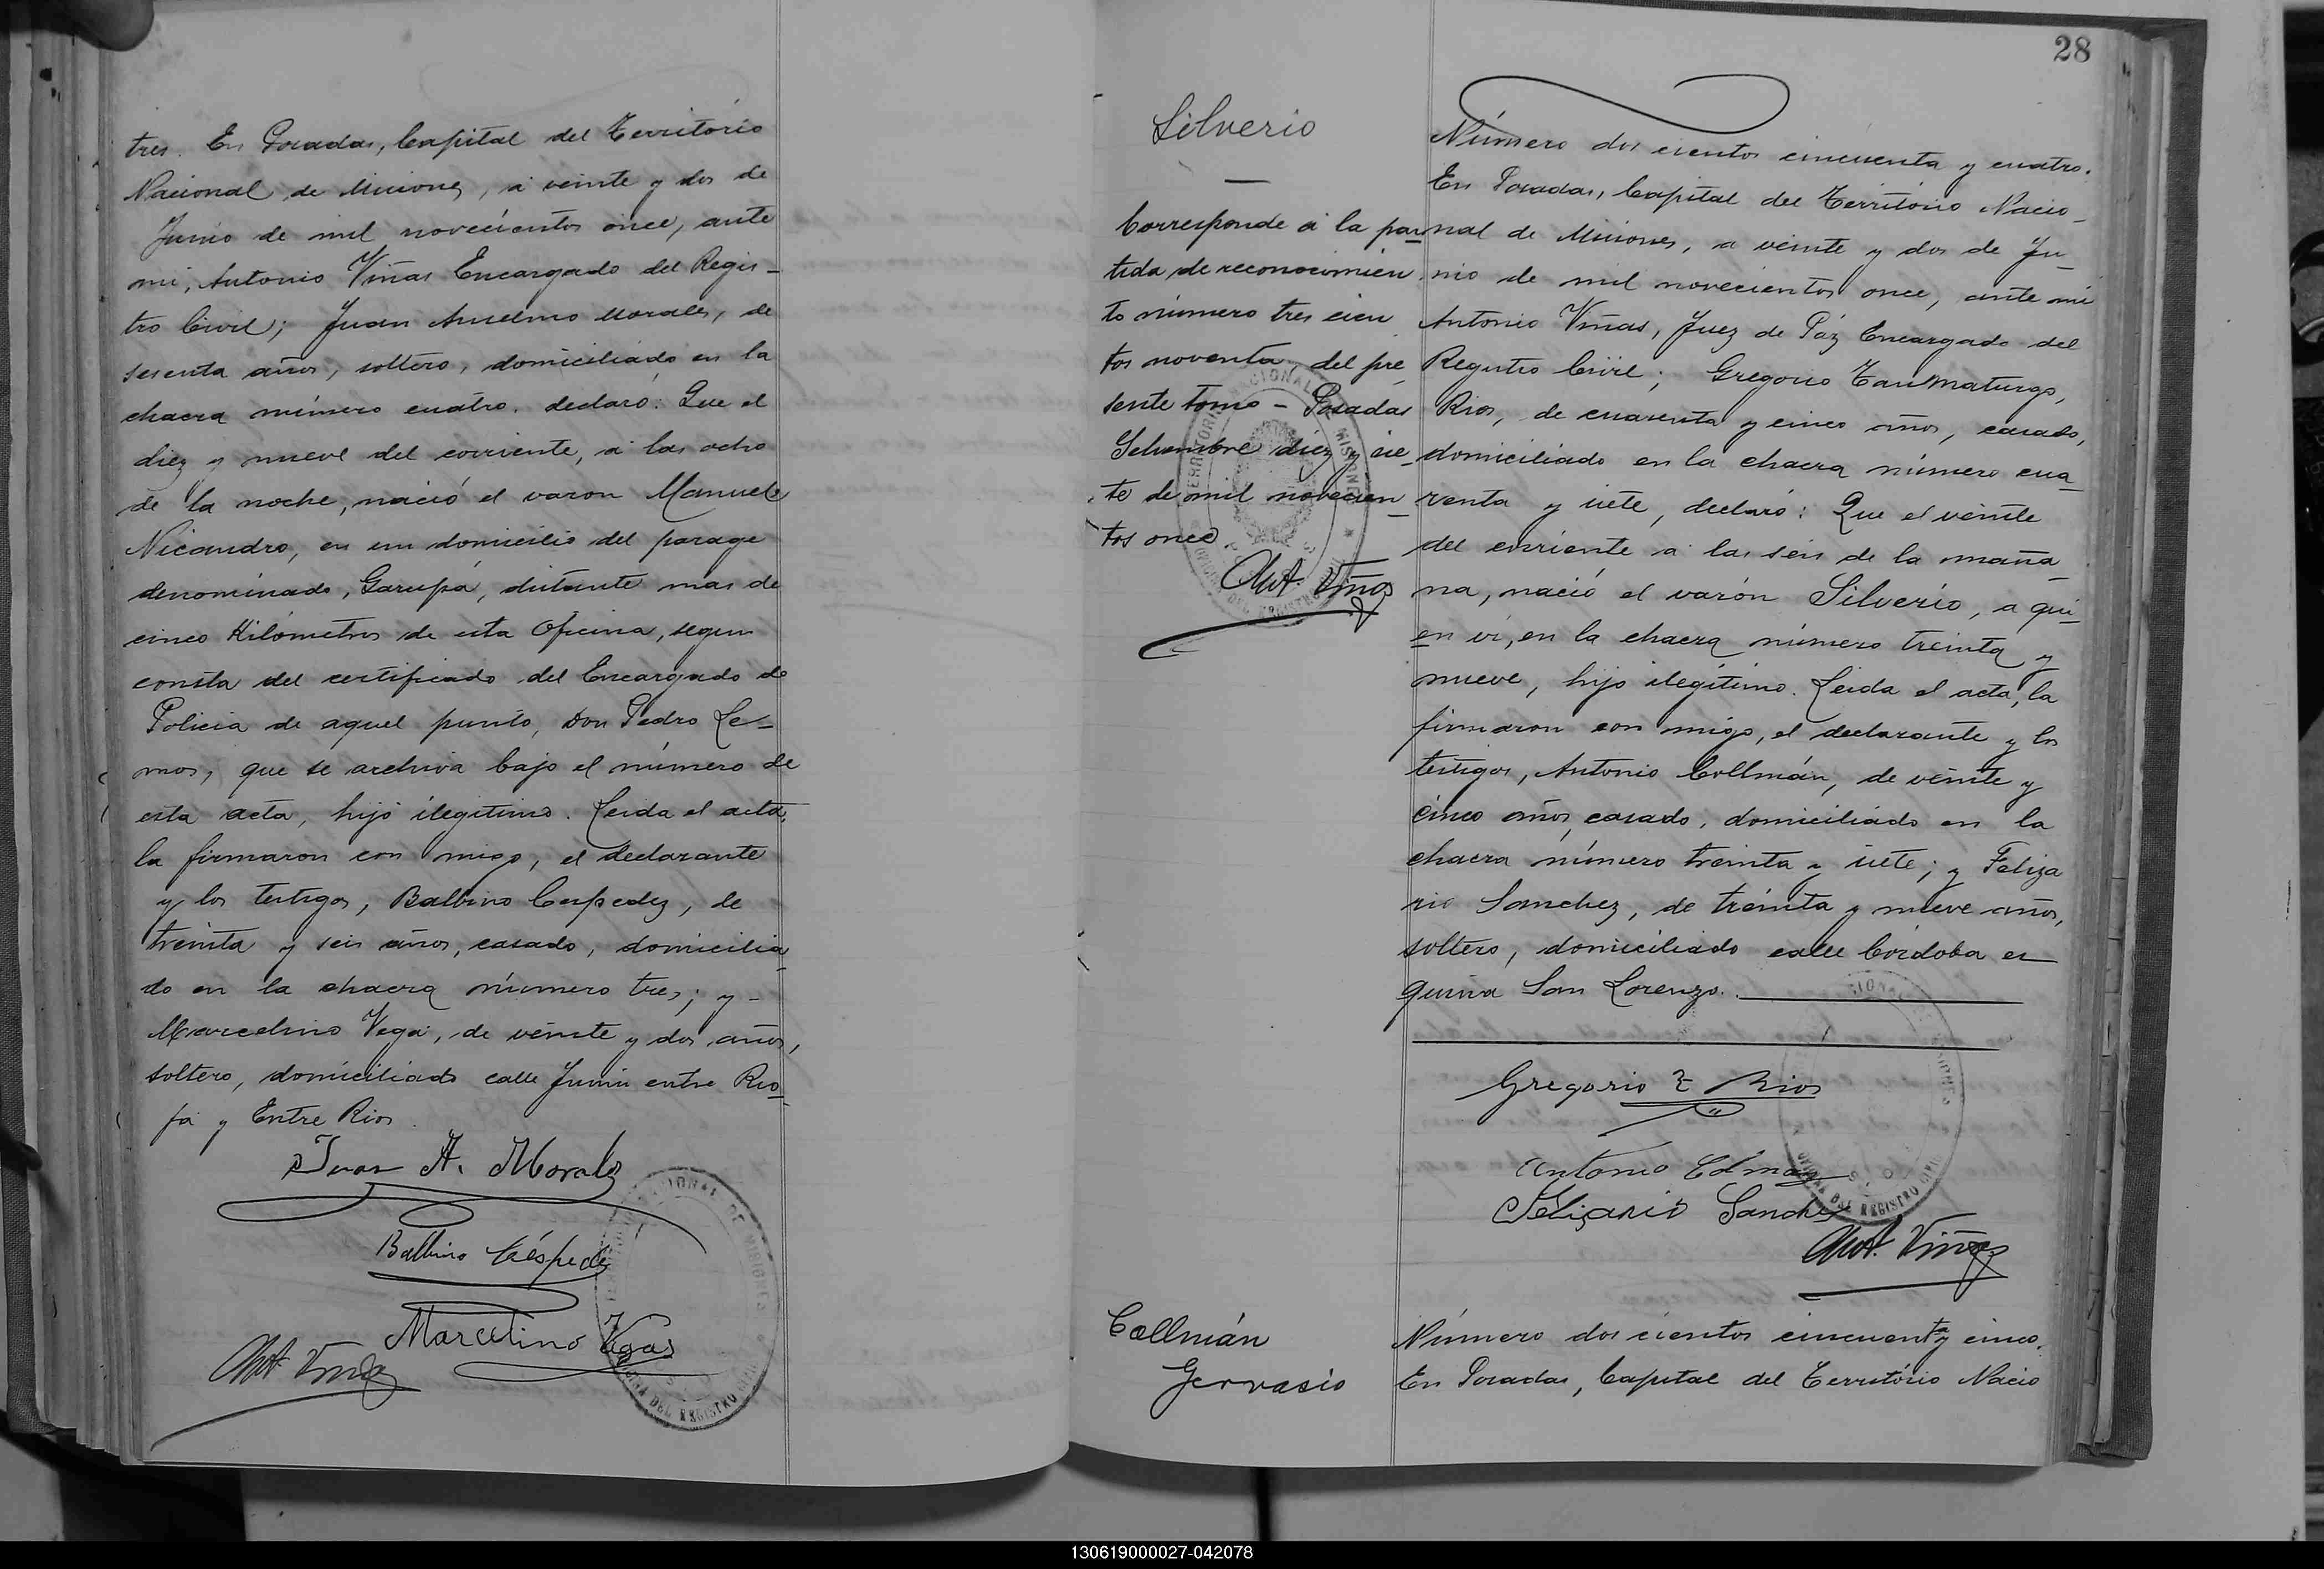 tres. En Posadas, Capital del Território
Nacional de Misiones, á veinte y dos de
Junio de mil novecientos once, ante
mi, Antonio Viñas Encargado del Regis-
tro Civil; Juan Anselmo Morales, de
sesenta años, soltero, domiciliado en la
chacra número cuatro. declaró: Que el
diez y nueve del corriente, á las ocho
de la noche, nació el varon Manuel
Nicandro, en un domicilio del parage
denominado, Garupá, distante mas de
cinco Kilómetros de esta Oficina, segun
consta del certificado del Encargado de
Policia de aquel punto, Don Pedro Le-
mos, que se archiva bajo el número de
esta acta, hijo ilegítimo. Leida el acta,
la firmaron con migo, el declarante
y los testigos, Balbino Cespedez, de
treinta y seis años, casado, domicilia
do en la chacra número tres; y -
Marcelino Vega, de veinte y dos años,
soltero, domiciliado calle Junin entre Rio
ja y Entre Rios.
Juan A. Morales
Balbino Céspedes
Marcelino Vegas
Ant. Viñas
28
Silverio
Corresponde á la par
tida de reconocimien
to número tres cien
tos noventa del pre
sente tomo - Posadas
Setiembre diez y sie-
te de mil novecien
tos once
Ant. Viñas
Número dos cientos cincuenta y cuatro.
En Posadas, Capital del Território Nacio-
nal de Misiones, a veinte y dos de Ju-
nio de mil novecientos once, ante mi
Antonio Viñas, Juez de Páz Encargado del
Registro Civil; Gregorio Taumaturgo,
Rios, de cuarenta y cinco años, casado,
domiciliado en la chacra número cua-
renta y siete, declaró: Que el veinte
del corriente á las seis de la maña-
na, nació el varón Silverio, a qui-
en vi, en la chacra número treinta y
nueve, hijo ilegítimo. Leida el acta, la
firmaron con migo, el declarante y los
testigos, Antonio Collmán, de veinte y
cinco años, casado, domiciliado en la
chacra número treinta y siete; y Feliza
rio Sanchez, de treinta y nueve años,
soltero, domiciliado calle Córdoba es
quina San Lorenzo.
Gregorio T Rios
Antonio Colman
Feliçario Sanchez
Ant. Viñas
Collmán
Gervasio
Número dos cientos cincuenta y cinco.
En Posadas, Capital del Território Nacio
130619000027-042078